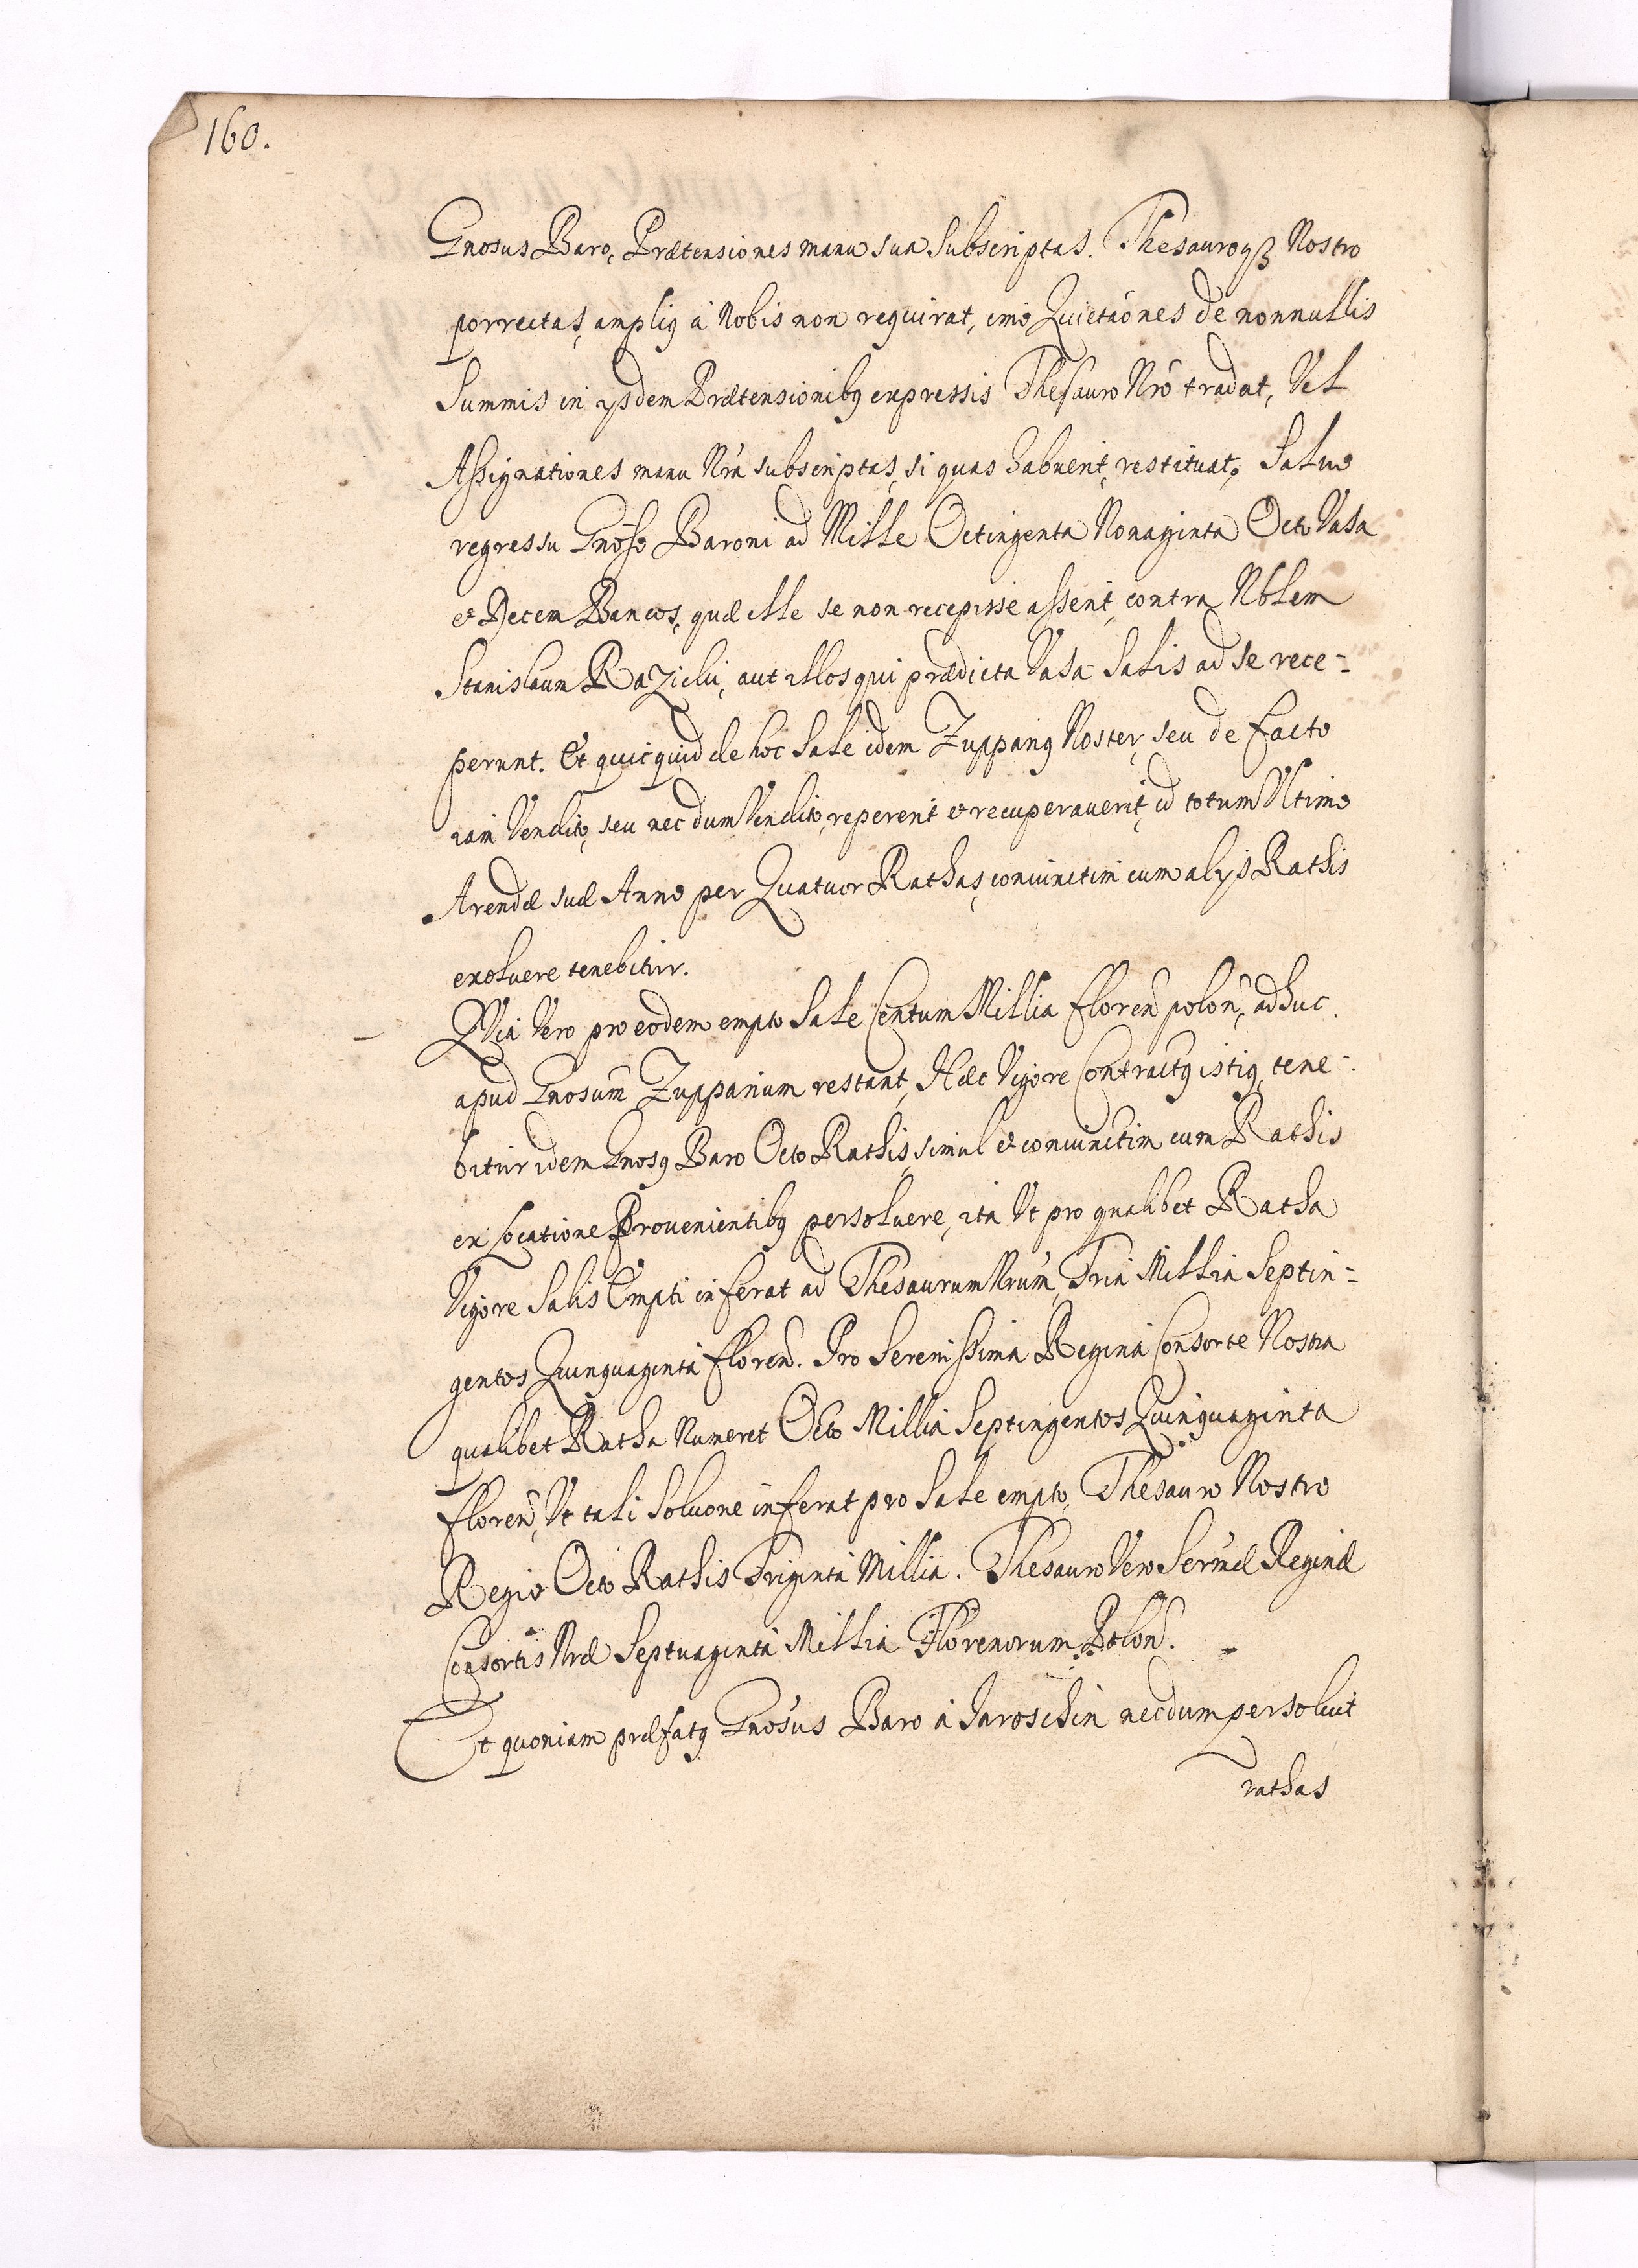 160.
Gnosus Baro, Prætensiones manu sua subscriptas. Thesauroqꝫ Nostro
porrectas, ampliꝰ à Nobis non requirat, imo Quietaōnes de nonnullis
Summis in ysdem Prætensionibꝰ expressis Thesauro Nrō tradat, Vel
Assignationes manu Nrā subscriptas, si quas habuerit, restituat, Saluo
regressu Gnōso Baroni ad Mille Octingenta Nonaginta Octo Vasa
& Decem Bancos, quæ ille se non recepisse asserit, contra Nblem
Stanislaum Razicki, aut illos qui prædicta Vasa Salis ad se rece=
perunt. Et quicquid de hoc Sale idem Zuppanꝰ Noster, seu de facto
iam Vendito, seu nec dum Vendito, repererit & recuperauerit, id totum Vltimo
Arendæ suæ Anno per Quatuor Rathas, coniunctim cum alys Rathis
exoluere tenebitur.
Quia Vero pro eodem empto Sale Centum Millia floren̄ polon̄, adhuc
apud Gnosum̄ Zupparium restant, Hæc Vigore Contractꝰ istiꝰ, tene=
bitur idem Gnosꝰ Baro Octo Rathis, simul & coniunctim cum Rathis
ex Locatione Prouenientibꝰ persoluere, ita Vt pro qualibet Ratha
Vigore Salis Empti inferat ad Thesaurum Nrūm, Tria Millia Septin=
gentos Quinquaginta floren̄. Pro Serenissima Regina Consorte Nostra
qualibet Ratha Numeret Octo Millia Septingentos Quinquaginta
floren̄, Vt tali Soluōne inferat pro Sale empto, Thesauro Nostro
Regio Octo Rathis Triginta Millia. Thesauro Vero Serm̄æ Reginæ
Consortis Nræ Septuaginta Millia Florenorum Polon̄.
Et quoniam præfatꝰ Gnōsus Baro à Jaroschin necdum persoluit
rathas